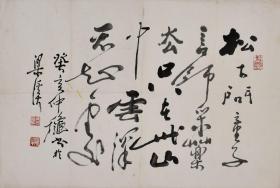 松下問童子
言師采藥
去只在此山
中雲深
不知處
癸亥仲書於
梁溪